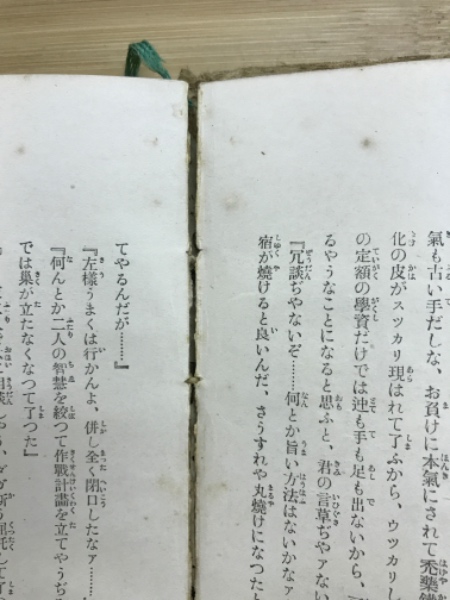 氣も古い手だしな、お負けに本氣にされて禿藥鑵
化の皮がスツカリ現はれて了ふから、ウツカリし
の定額の學資だけでは迚も手も足も出ないから、
るやうなことになると思ふと、君の言草ぢやアない
『冗談ぢやないぞ……何とか旨い方法はないかなァ
宿が燒けると良いんだ、さうすれや丸燒けになつたと
てやるんだが………』
『左樣うまくは行かんよ、併し全く閉口したなァ……
『何んとか二人の智慧を絞つて作戰計畫を立てやうぢ
では巣が立たなくなつて了つた』